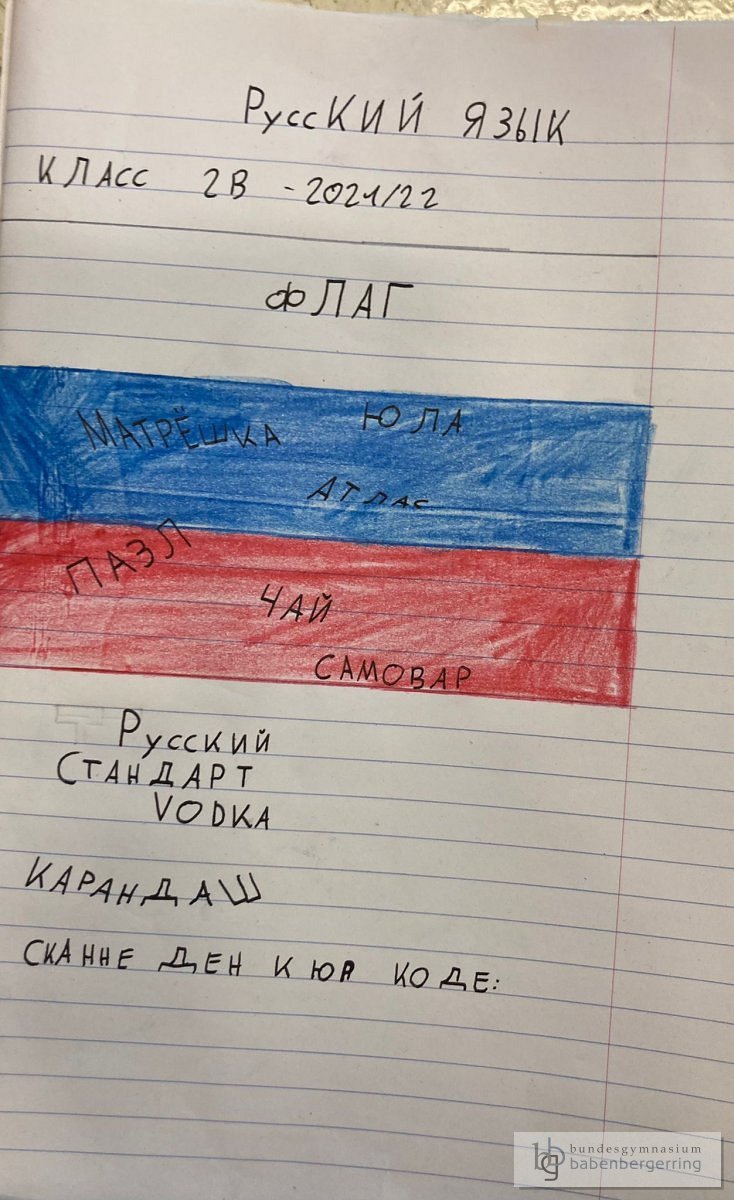 РуссКИЙ ЯЗЫК
КЛАСС 2В - 2021/22
ФЛАГ
МАТРЁШКА ЮЛА
АТЛАС
ПАЗЛ
ЧАЙ
САМОВАР
Русский
СТАНДАРТ
VODKA
КАРАНДАШ
СКАННЕ ДЕН К ЮА КОДЕ:
bundesgymnasium
babenbergerring